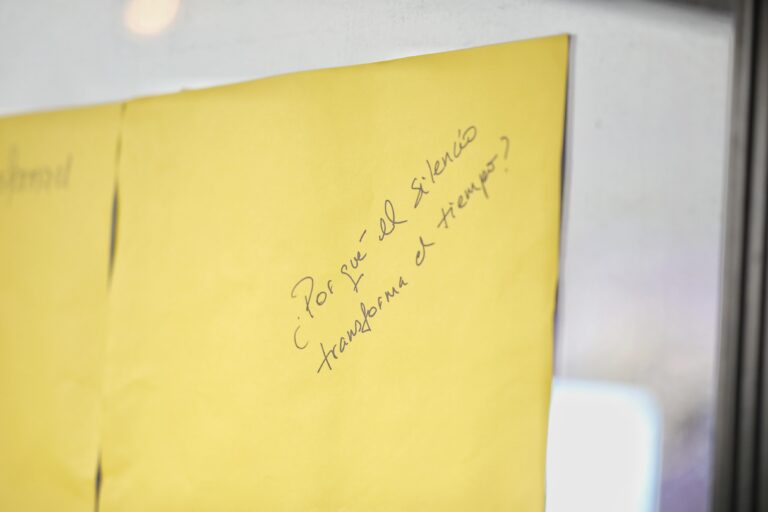 ¿Por qué el silencio
transforma el tiempo?